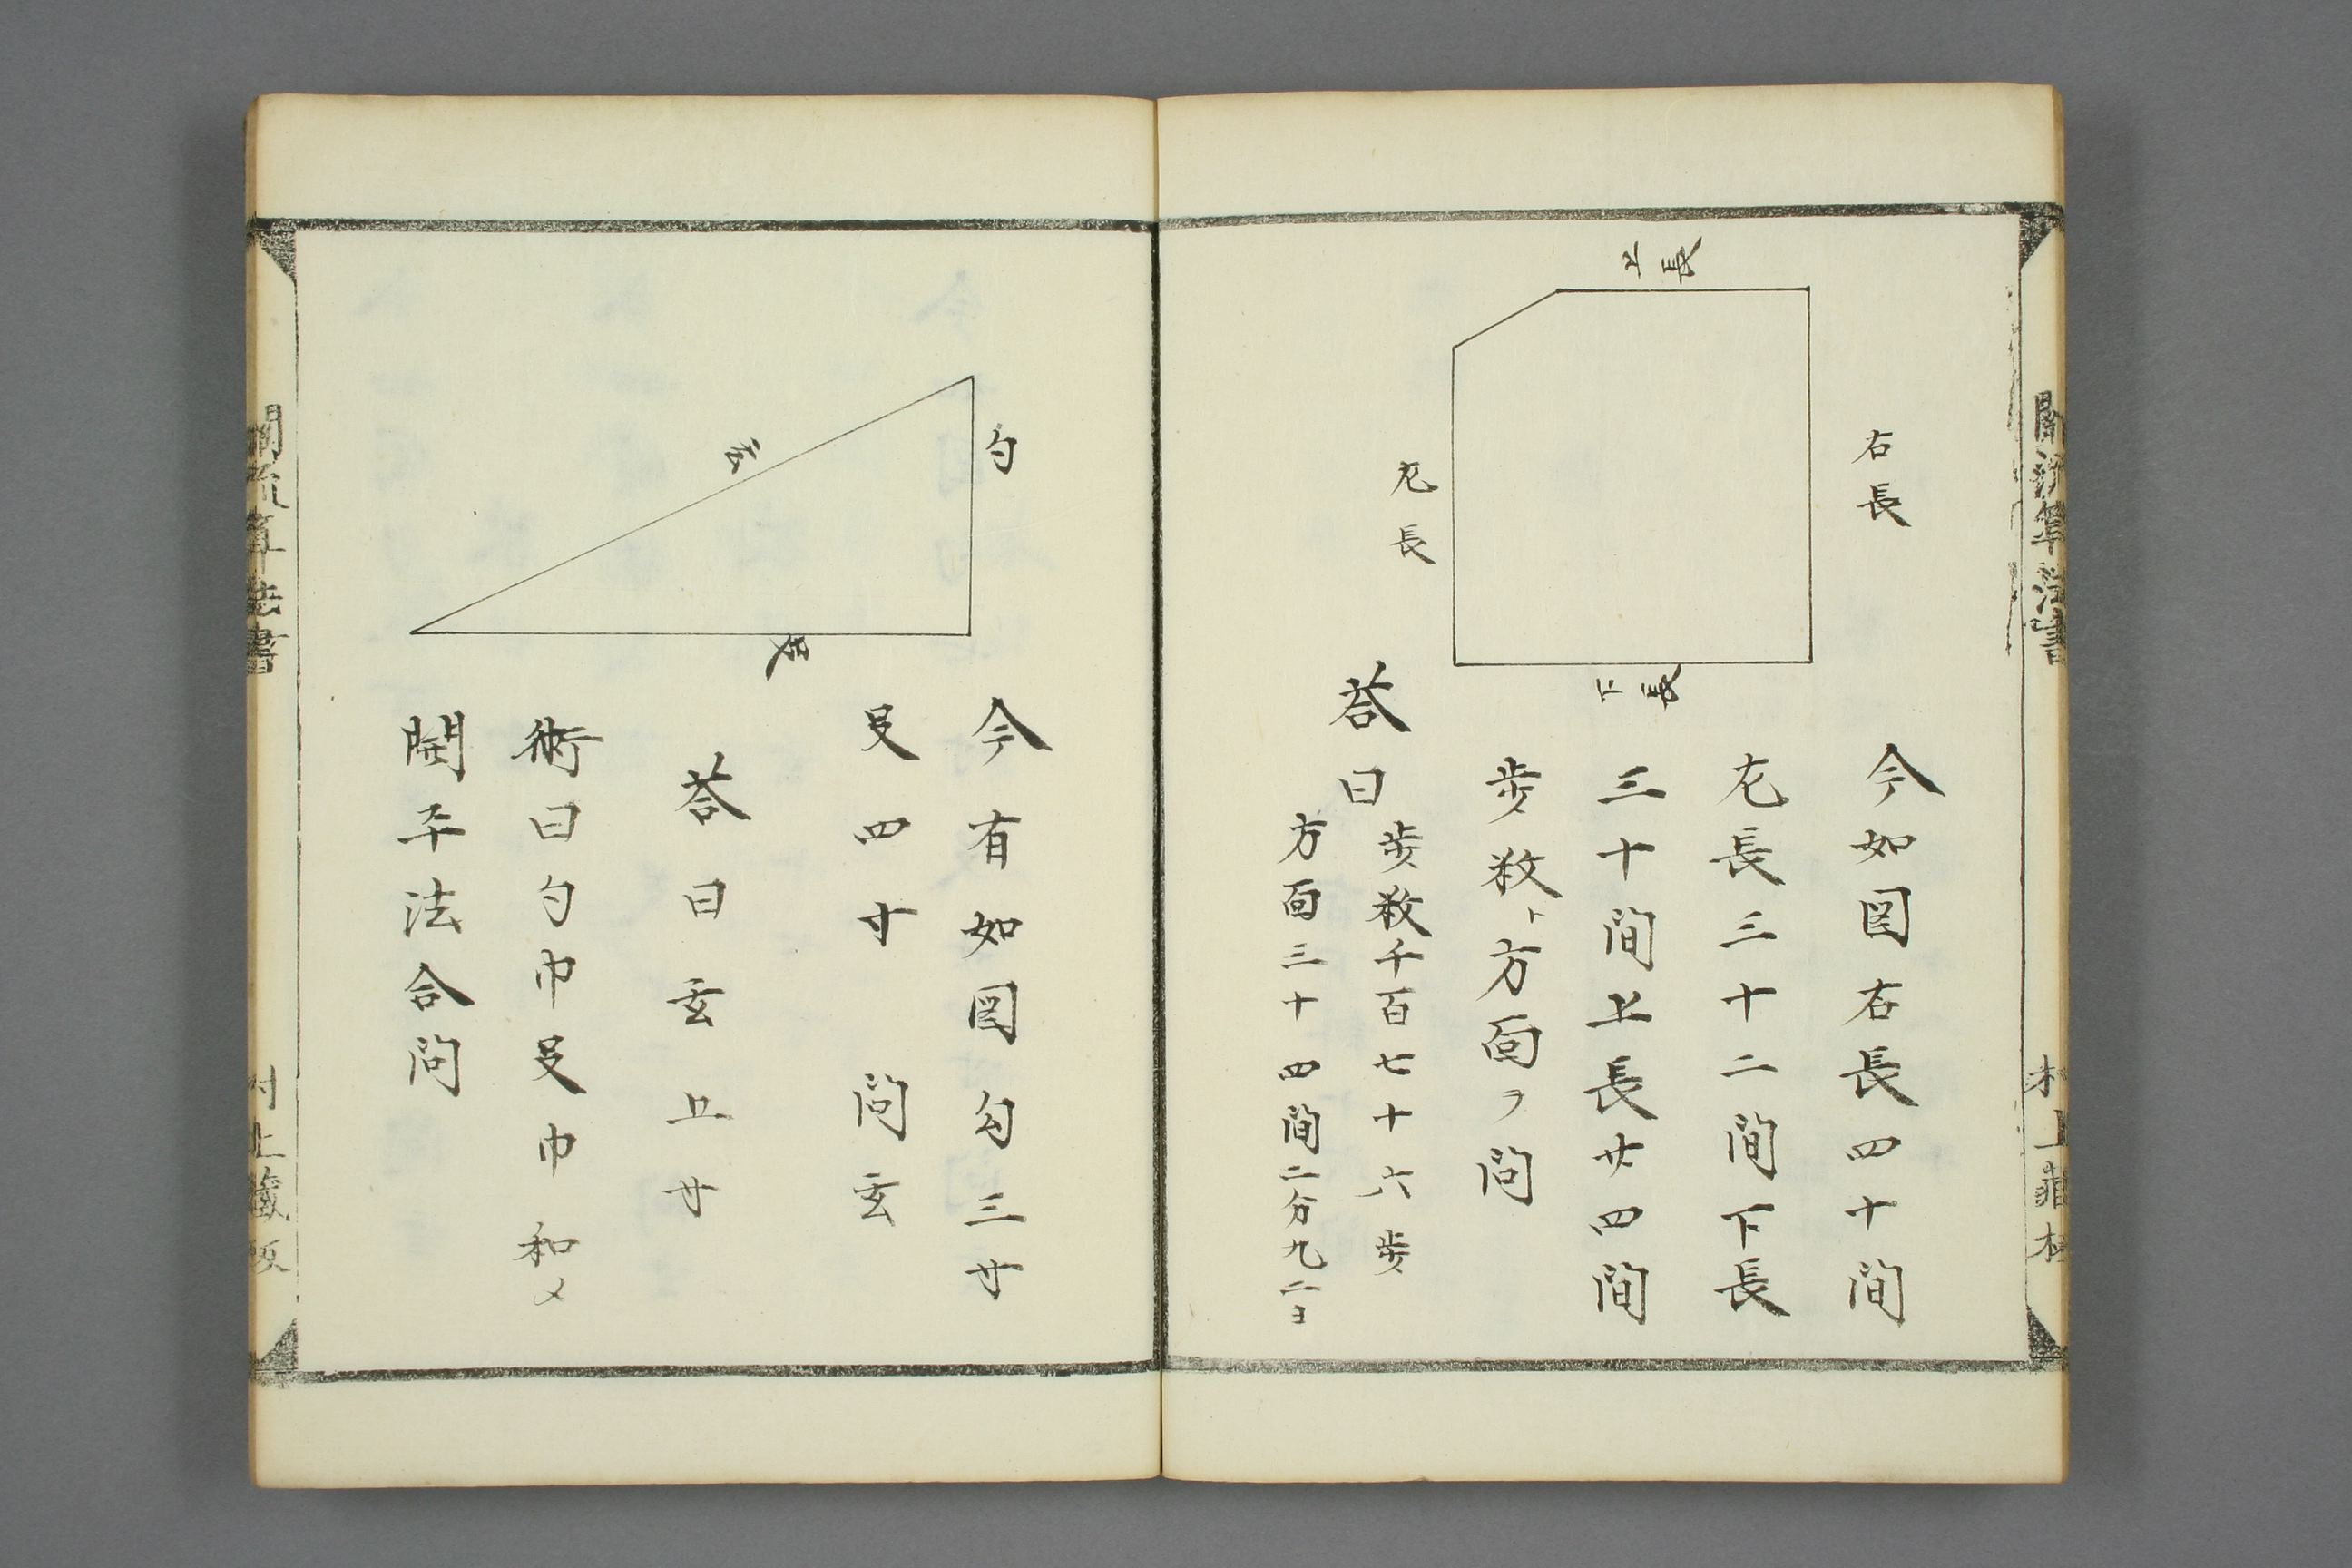 上長
右長
左長
下長
今如図右長四十間
左長三十二間下長
三十間上長廿四間
歩数ト方面ヲ問
答曰
歩数千百七十六歩
方面三十四間二分九二ヨ
勺
玄
㞋
今有如図勾三寸
㞋四寸　問玄
答曰玄五寸
術曰勺巾㞋巾和〆
開平法合問
関流算法書
村上蔵板